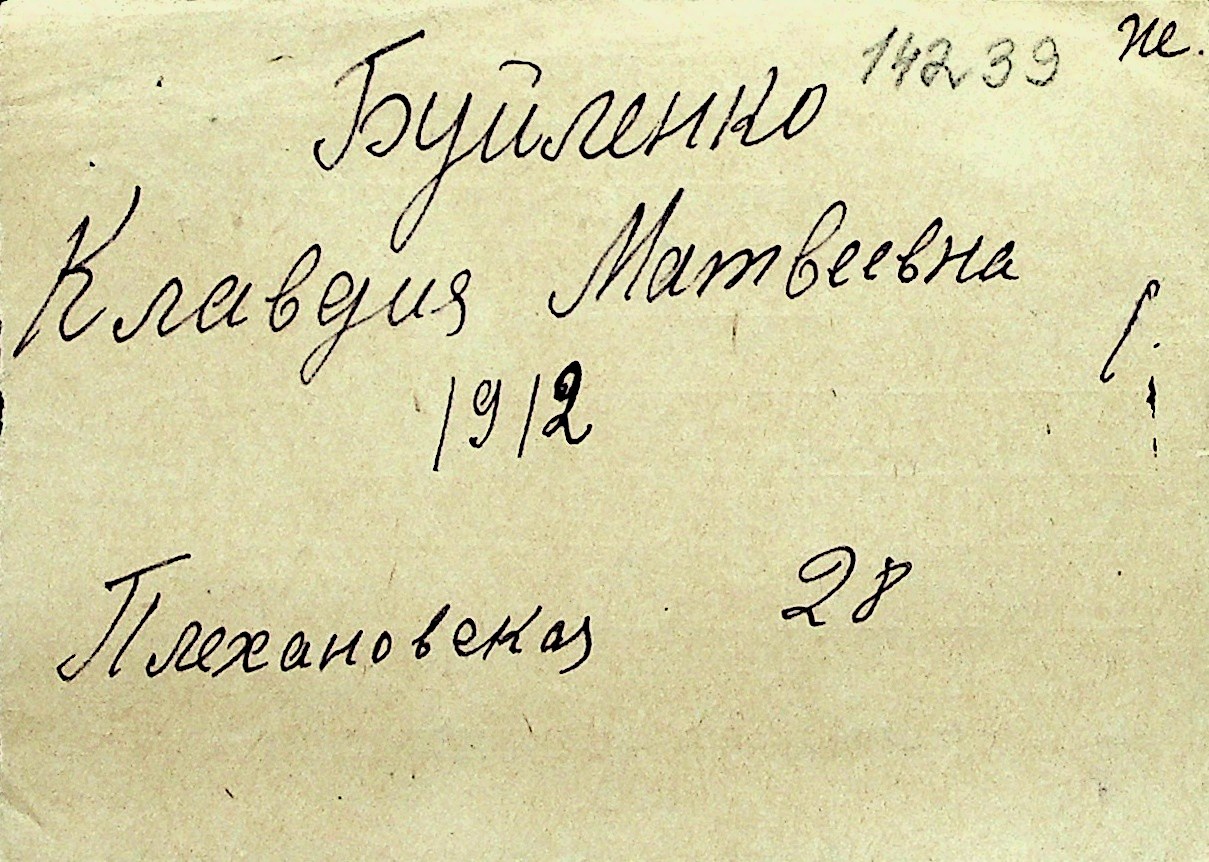 14239 ж.
Буйленко
Клавдия Матвеевна
1912
Плехановская 28